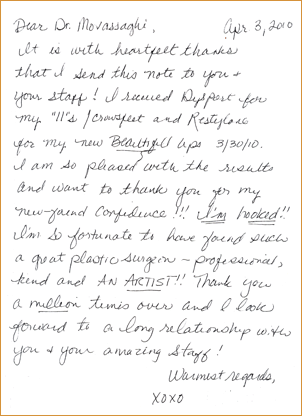 Dear Dr. Movassaghi, Apr 3, 2010
It is with heartfelt thanks
that I send this note to you +
your staff! I received Dysport for
my "11's"/crowsfeet and Restylane
for my new Beautiful lips 3/30/10.
I am so pleased with the results
and want to thank you for my
new-found confidence!!! I'm hooked!!
I'm so fortunate to have found such
a great plastic surgeon - professional,
kind and AN ARTIST!! Thank you
a million times over and I look
forward to a long relationship with
you + your amazing staff!
Warmest regards,
XOXO